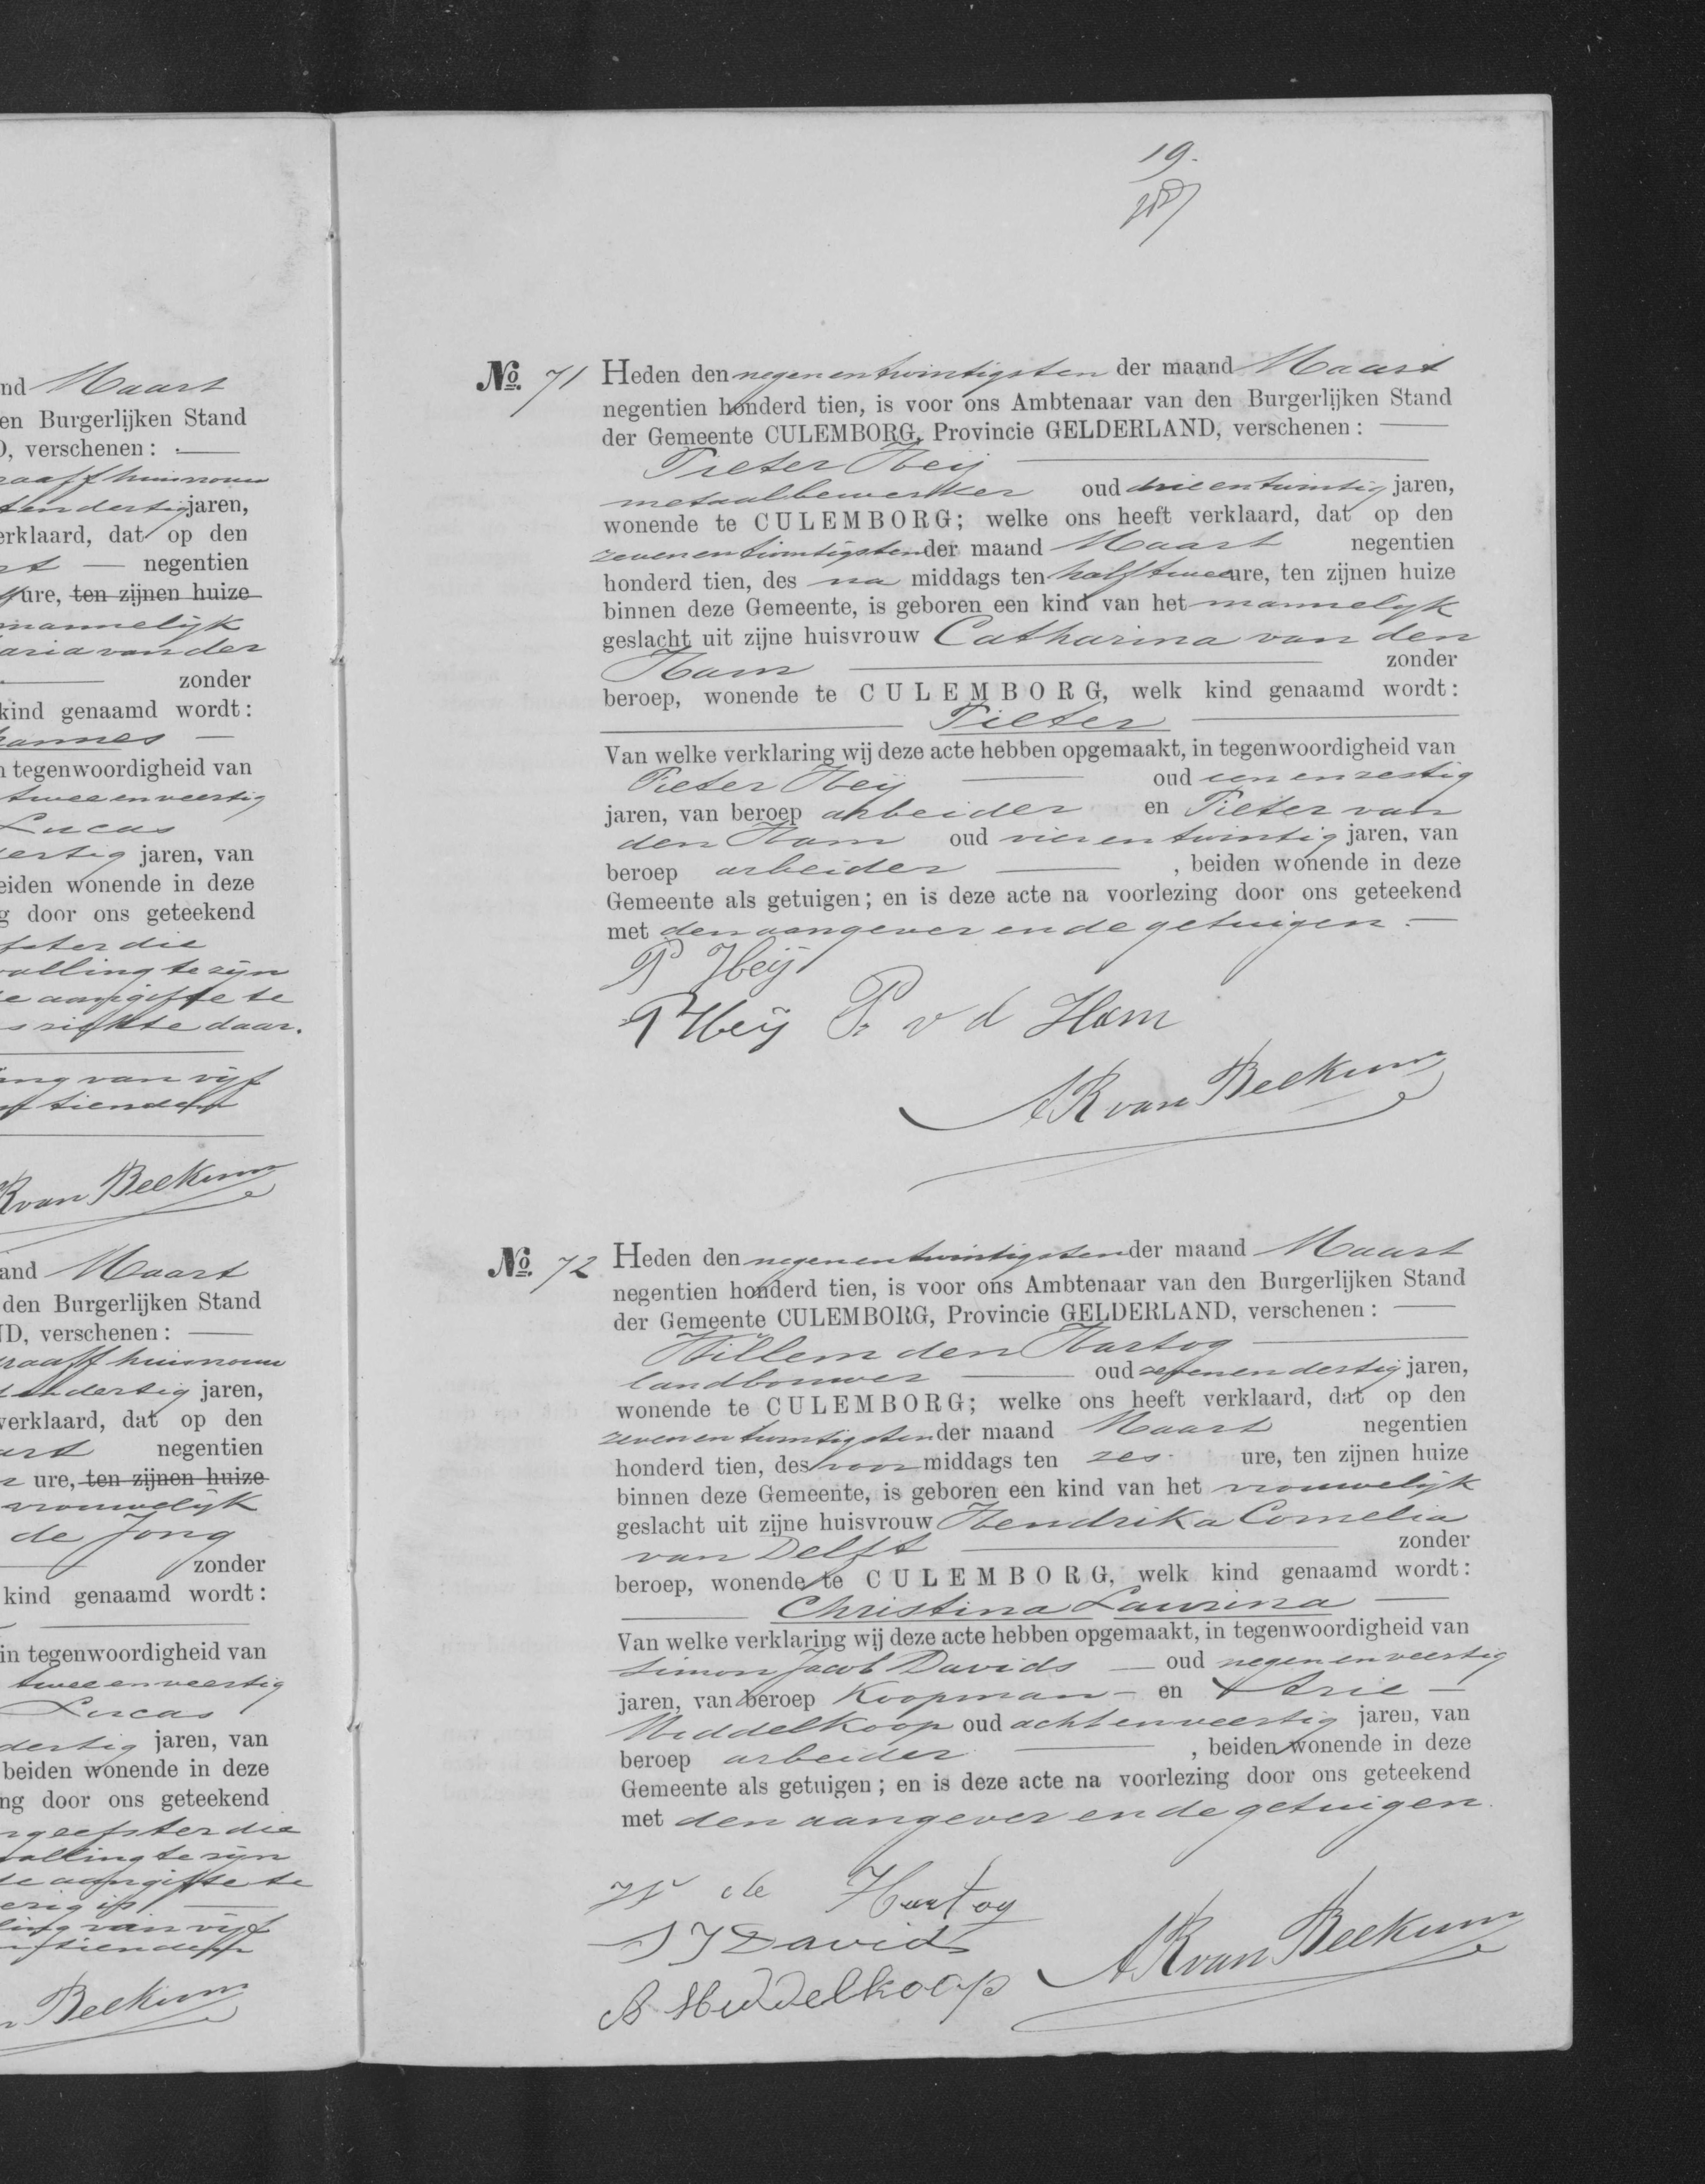 nd Maart
en Burgerlijken Stand
, verschenen :
raaff huisvrouw
tendertig jaren,
erklaard, dat op den
negentien
ure, ten zijnen huize
mannelijk
aria van der
zonder
kind genaamd wordt:
hannes
tegenwoordigheid van
tweeenveertig
Lucas
dertig jaren, van
eiden wonende in deze
g door ons geteekend
fster die
valling te zijn
e aangifte te
daar.
ing van vijf
R van Beekum
and Maart
den Burgerlijken Stand
D, verschenen :
raaff huisvrouw
endertig jaren,
verklaard, dat op den
art negentien
ure, ten zijnen huize
vrouwelijk
de Jong
zonder
kind genaamd wordt:
in tegenwoordigheid van
tweeenveertig
Lucas
dertig jaren, van
beiden wonende in deze
ng door ons geteekend
geefster die
valling te zijn
de aangifte te
ling van vijf
Beekum
19.
No. 71 Heden den negenentwintigsten der maand Maart
negentien honderd tien, is voor ons Ambtenaar van den Burgerlijken Stand
der Gemeente CULEMBORG, Provincie GELDERLAND, verschenen :
Pieter Heij
metaalbewerker oud drieentwintig jaren,
wonende te CULEMBORG; welke ons heeft verklaard, dat op den
zevenentwintigsten der maand Maart negentien
honderd tien, des na middags ten half twee ure, ten zijnen huize
binnen deze Gemeente, is geboren een kind van het mannelijk
geslacht uit zijne huisvrouw Catharina van den
Ham zonder
beroep, wonende te CULEMBORG, welk kind genaamd wordt:
Pieter
Van welke verklaring wij deze acte hebben opgemaakt, in tegenwoordigheid van
Pieter Heij oud eenenzestig
jaren, van beroep arbeider en Pieter van
den Ham oud vierentwintig jaren, van
beroep arbeider , beiden wonende in deze
Gemeente als getuigen; en is deze acte na voorlezing door ons geteekend
met den aangever en de getuigen.
P Heij
P Heij P. v d Ham
AR van Beekum
No. 72 Heden den negenentwintigsten der maand Maart
negentien honderd tien, is voor ons Ambtenaar van den Burgerlijken Stand
der Gemeente CULEMBORG, Provincie GELDERLAND, verschenen :
Willem den Hartog
landbouwer oud zevenendertig jaren,
wonende te CULEMBORG; welke ons heeft verklaard, dat op den
zevenentwintigsten der maand Maart negentien
honderd tien, des voor middags ten zes ure, ten zijnen huize
binnen deze Gemeente, is geboren een kind van het vrouwelijk
geslacht uit zijne huisvrouw Hendrika Cornelia
van Delft zonder
beroep, wonende te CULEMBORG, welk kind genaamd wordt:
Christina Laurina
Van welke verklaring wij deze acte hebben opgemaakt, in tegenwoordigheid van
Simon Jacob Davids oud negenenveertig
jaren, van beroep Koopman en Arie
Middelkoop oud achtenveertig jaren, van
beroep arbeider , beiden wonende in deze
Gemeente als getuigen; en is deze acte na voorlezing door ons geteekend
met den aangever en de getuigen.
W de Hartog
S J Davids
A Middelkoop
AR van Beekum